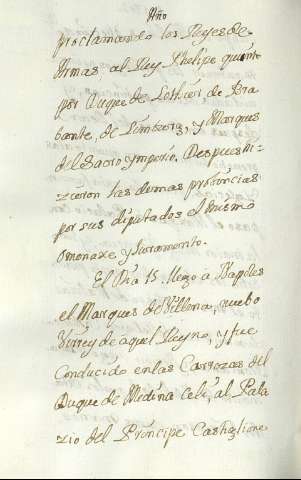 Año
proclamando los Reyes de
Armas, al Rey Phelipe quinto
por Duque de Lothier de Bra
bante, de Limborg, y Marques
del Sacro ymperio. Despues hi-
zieron las demas probincias
por sus diputados el mismo
omenaxe y Juramento.
El Dia 15 llego a Napoles
el Marques de Villena, nuebo
Virrey de aquel Reyno, y fue
Conducido en las Carrozas del
Duque de Medina Celi, al Pala
zio del Principe Castiglione